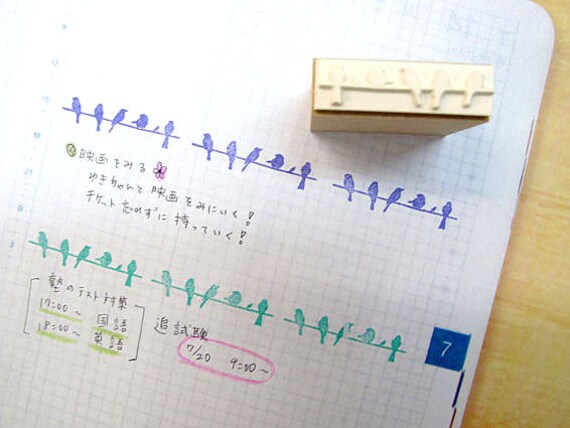 映画をみる
ゆきちゃんと映画をみにいく！
チケット忘れずに持っていく！
塾のテスト対策
17:00〜 国語
18:00〜 英語
追試験
7/20 9:00〜
7